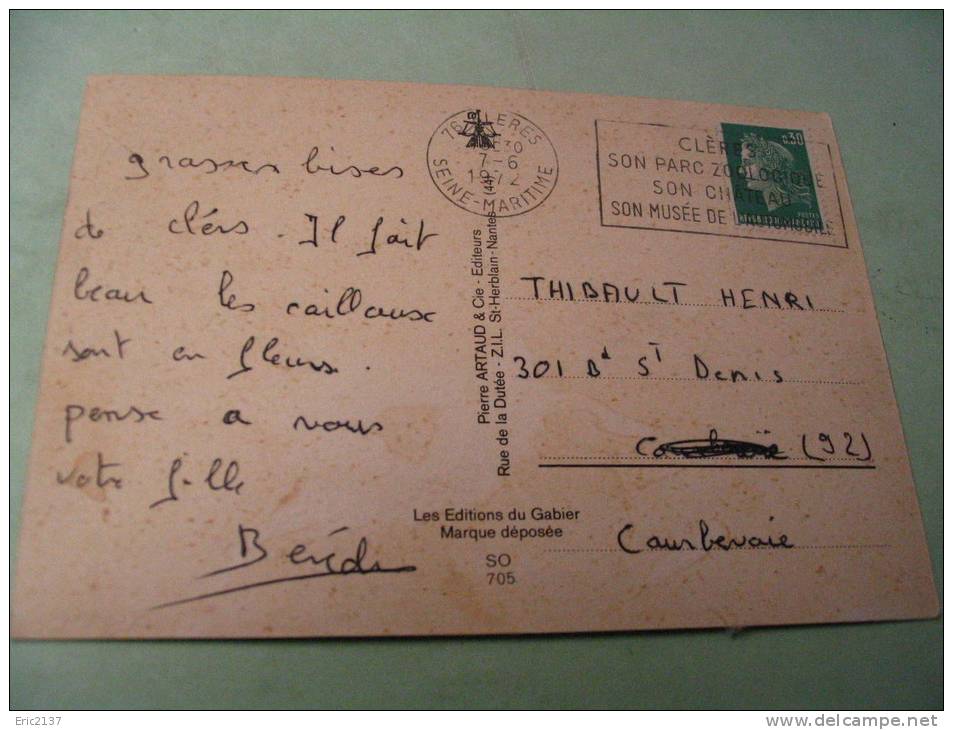 grasses bises
de clérs. Il fait
beau les caillaux
sont en fleurs.
pense a vous
votre fille
76 CLERES
7-6
1972
SEINE-MARITIME
CLÈRES
SON PARC ZOOLOGIQUE
SON CHATEAU
SON MUSÉE DE L'AUTOMOBILE
0,30
POSTES
Pierre ARTAUD & Cie - Editeurs
Rue de la Dutée - Z.I.L. St-Herblain-Nantes (44)
THIBAULT HENRI
301 Bd ST Denis
(92)
Courbevoie
Les Editions du Gabier
Marque déposée
SO
705
Eric2137
www.delcampe.net